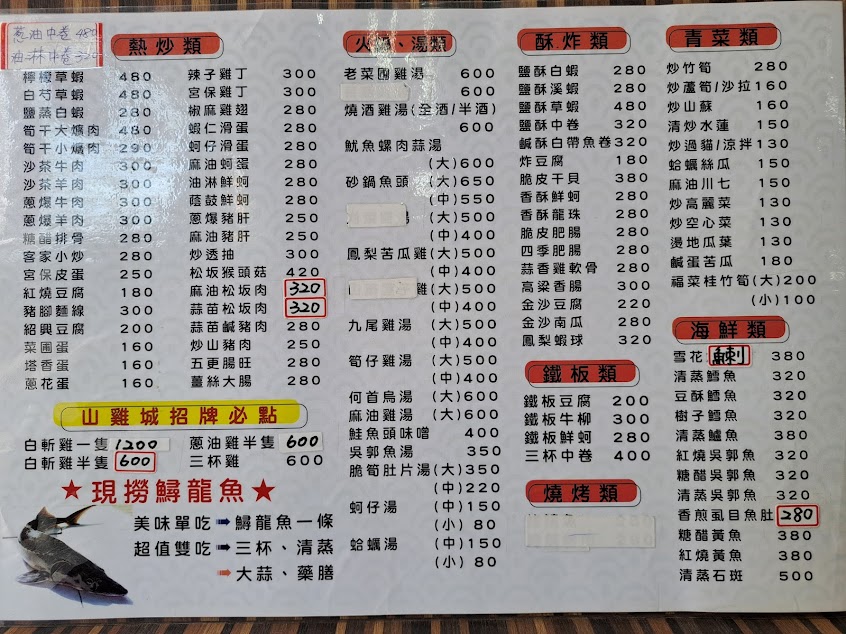 蔥油中卷 480
油淋中卷 320
熱炒類
檸檬草蝦 480
白芍草蝦 480
鹽蒸白蝦 280
筍干大爌肉 480
筍干小爌肉 290
沙茶牛肉 300
沙茶羊肉 300
蔥爆牛肉 300
蔥爆羊肉 300
糖醋排骨 280
客家小炒 280
宮保皮蛋 250
紅燒豆腐 180
豬腳麵線 300
紹興豆腐 200
菜圃蛋 160
塔香蛋 160
蔥花蛋 160
辣子雞丁 300
宮保雞丁 300
椒麻雞翅 280
蝦仁滑蛋 280
蚵仔滑蛋 280
麻油蚵蛋 280
油淋鮮蚵 280
蔭鼓鮮蚵 280
蔥爆豬肝 250
麻油豬肝 250
炒透抽 300
松坂猴頭菇 420
麻油松坂肉 320
蒜苗松坂肉 320
蒜苗鹹豬肉 280
炒山豬肉 280
五更腸旺 280
薑絲大腸 280
山雞城招牌必點
白斬雞一隻 1200
白斬雞半隻 600
蔥油雞半隻 600
三杯雞 600
★現撈鱘龍魚★
美味單吃➡鱘龍魚一條
超值雙吃➡三杯、清蒸
➡大蒜、藥膳
火鍋、湯類
老菜圃雞湯 600
燒酒雞湯(全酒/半酒)
600
魷魚螺肉蒜湯
(大)600
砂鍋魚頭 (大)650
(中)550
(大)500
(中)400
鳳梨苦瓜雞(大)500
(中)400
雞(大)500
(中)400
九尾雞湯 (大)500
(中)400
筍仔雞湯 (大)500
(中)400
何首烏湯 (大)600
麻油雞湯 (大)600
鮭魚頭味噌 400
吳郭魚湯 350
脆筍肚片湯(大)350
(中)220
蚵仔湯 (中)150
(小)80
蛤蠣湯 (中)150
(小)80
酥.炸類
鹽酥白蝦 280
鹽酥溪蝦 280
鹽酥草蝦 480
鹽酥中卷 320
鹹酥白帶魚卷 320
炸豆腐 180
脆皮干貝 380
香酥鮮蚵 280
香酥龍珠 280
脆皮肥腸 280
四季肥腸 280
蒜香雞軟骨 280
高梁香腸 300
金沙豆腐 220
金沙南瓜 280
鳳梨蝦球 320
鐵板類
鐵板豆腐 200
鐵板牛柳 300
鐵板鮮蚵 280
三杯中卷 400
燒烤類
青菜類
炒竹筍 280
炒蘆筍/沙拉 160
炒山蘇 160
清炒水蓮 150
炒過貓/涼拌 130
蛤蠣絲瓜 150
麻油川七 150
炒高麗菜 130
炒空心菜 130
燙地瓜葉 130
鹹蛋苦瓜 180
福菜桂竹筍(大)200
(小)100
海鮮類
雪花鯻 380
清蒸鱈魚 320
豆酥鱈魚 320
樹子鱈魚 320
清蒸鱸魚 380
紅燒吳郭魚 320
糖醋吳郭魚 320
清蒸吳郭魚 320
香煎虱目魚肚 280
糖醋黃魚 380
紅燒黃魚 380
清蒸石斑 500